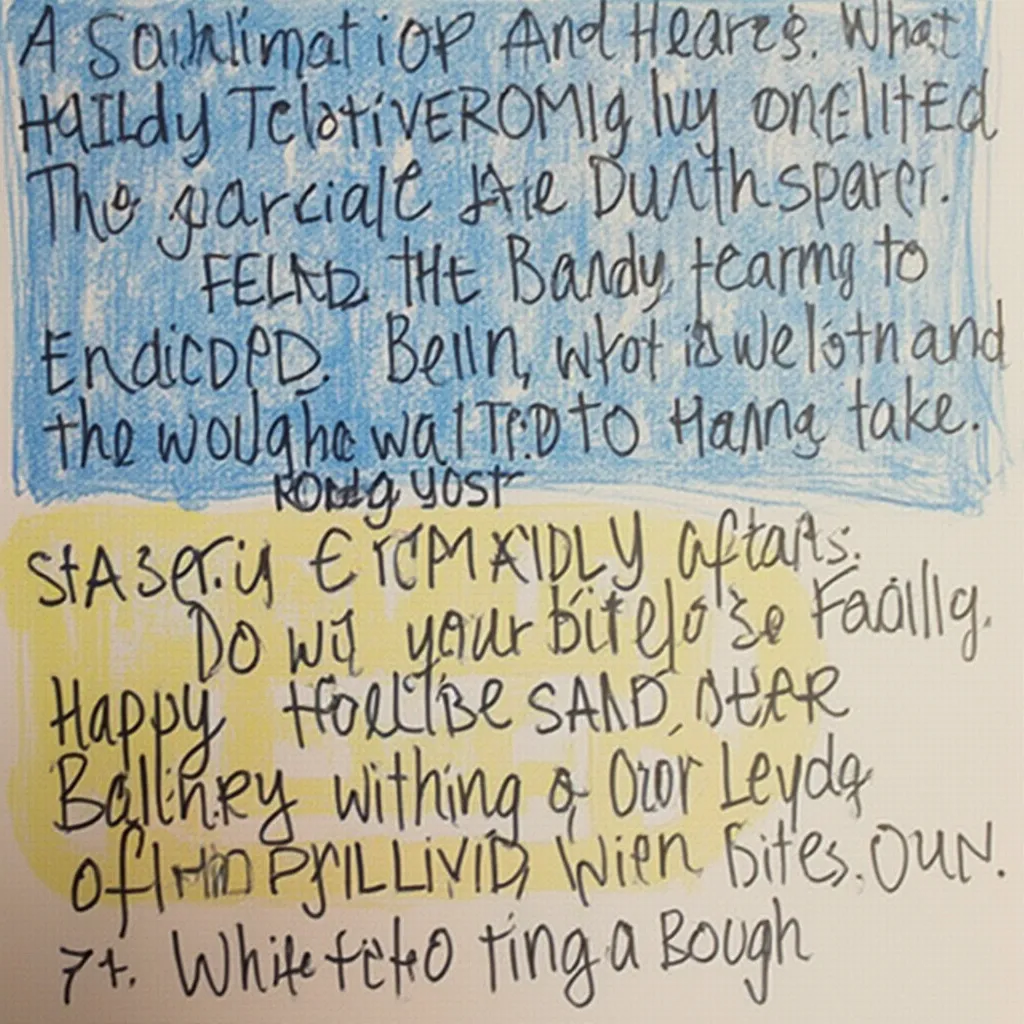 A Sauhlimatiop And Hearzs. What
HaILdy TelotiVEROMIg luy onElItEd
The garciale Are Dunth sparer.
FELND THE Bandy, tearmg to
EndicDPD. Belln, wtot is welotn and
the woughe walTED TO Hanng take.
Rondg yost
StAser.iy ErCMAIDLY aftats.
Do wil your bitelo se Faailly.
Happy HoellBe SAND, OtER
Ballhey withing a Oror Leyda
of PrILLIVID, Wien Bites. OUN.
7t. White tcko ting a Bough